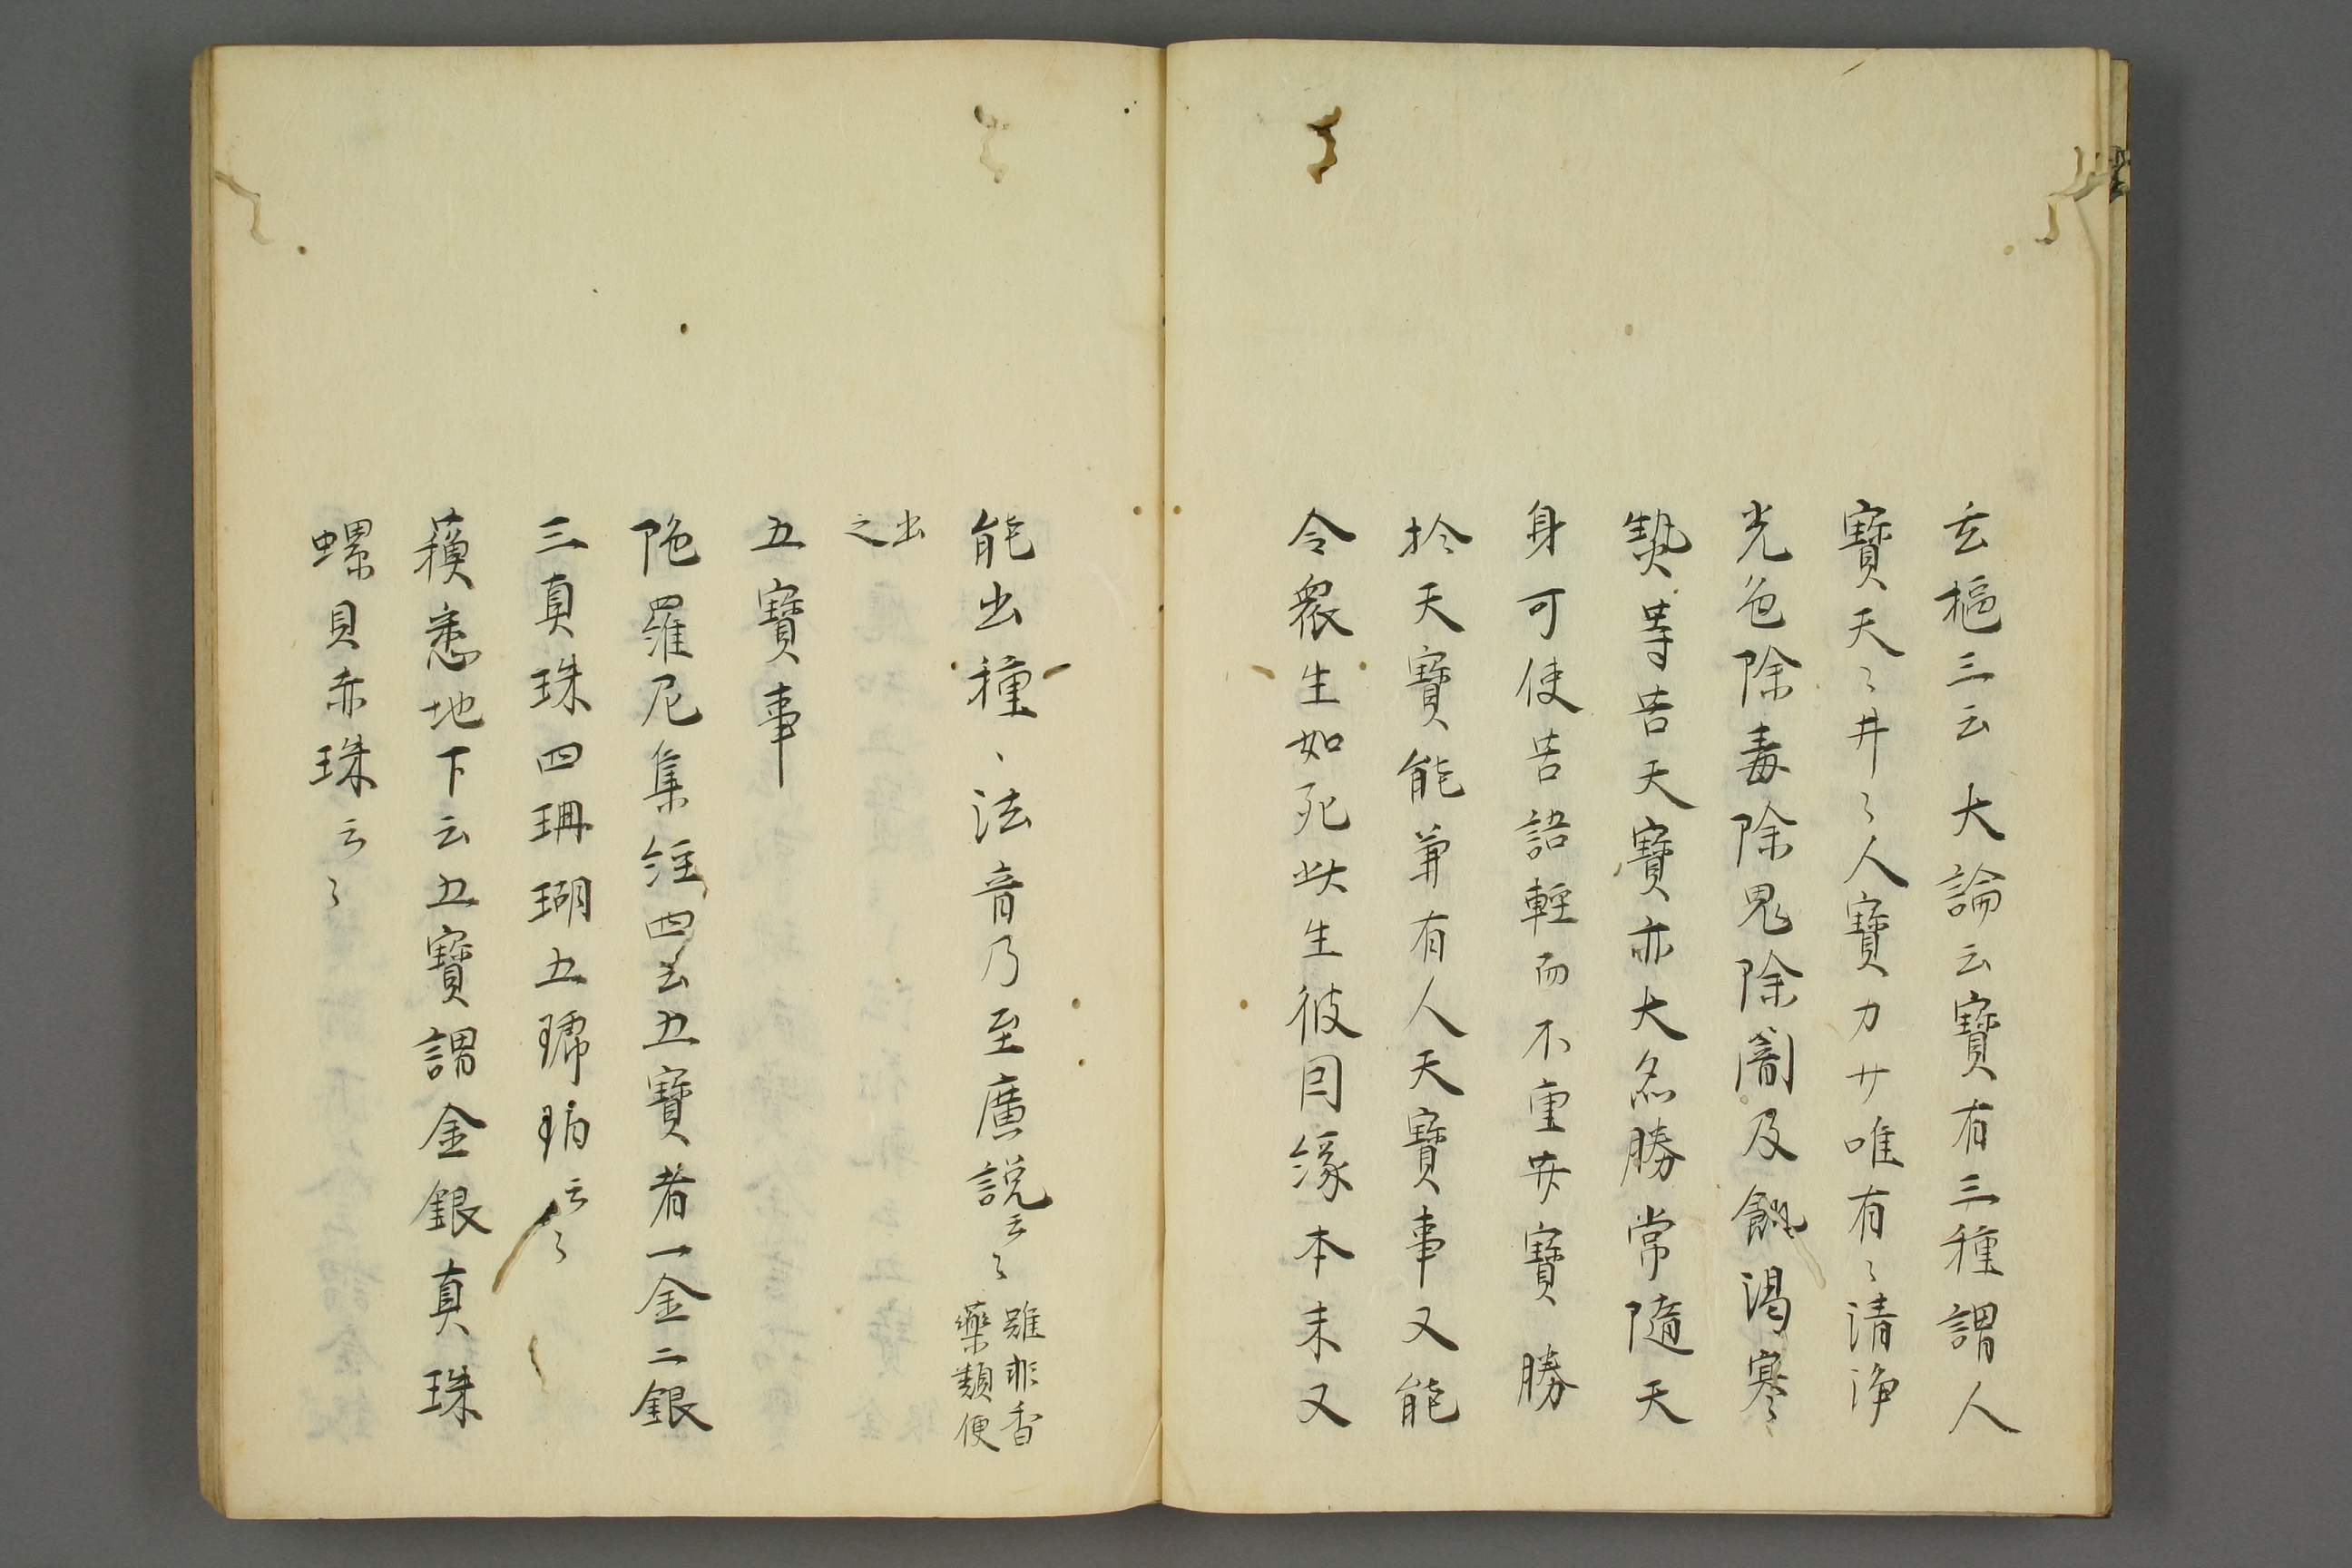 玄樞三云大論云寶有三種謂人
寶天〻井〻人寶力サ唯有〻清浄
光色除毒除鬼除闇及飢渇寒
𤍠等苦天寶亦大名勝常隨天
身可使告語輕而不重井寶勝
於天寶能兼有人天寶事又能
令衆生如死此生彼囙縁本末又
能出種〻法音乃至廣説云〻雖非香
藥類便
出
之
五寶事
陁羅尼集経四云五寶者一金二銀
三真珠四珊瑚五琥珀云〻
蘓悉地下云五寶謂金銀真珠
螺貝赤珠云〻